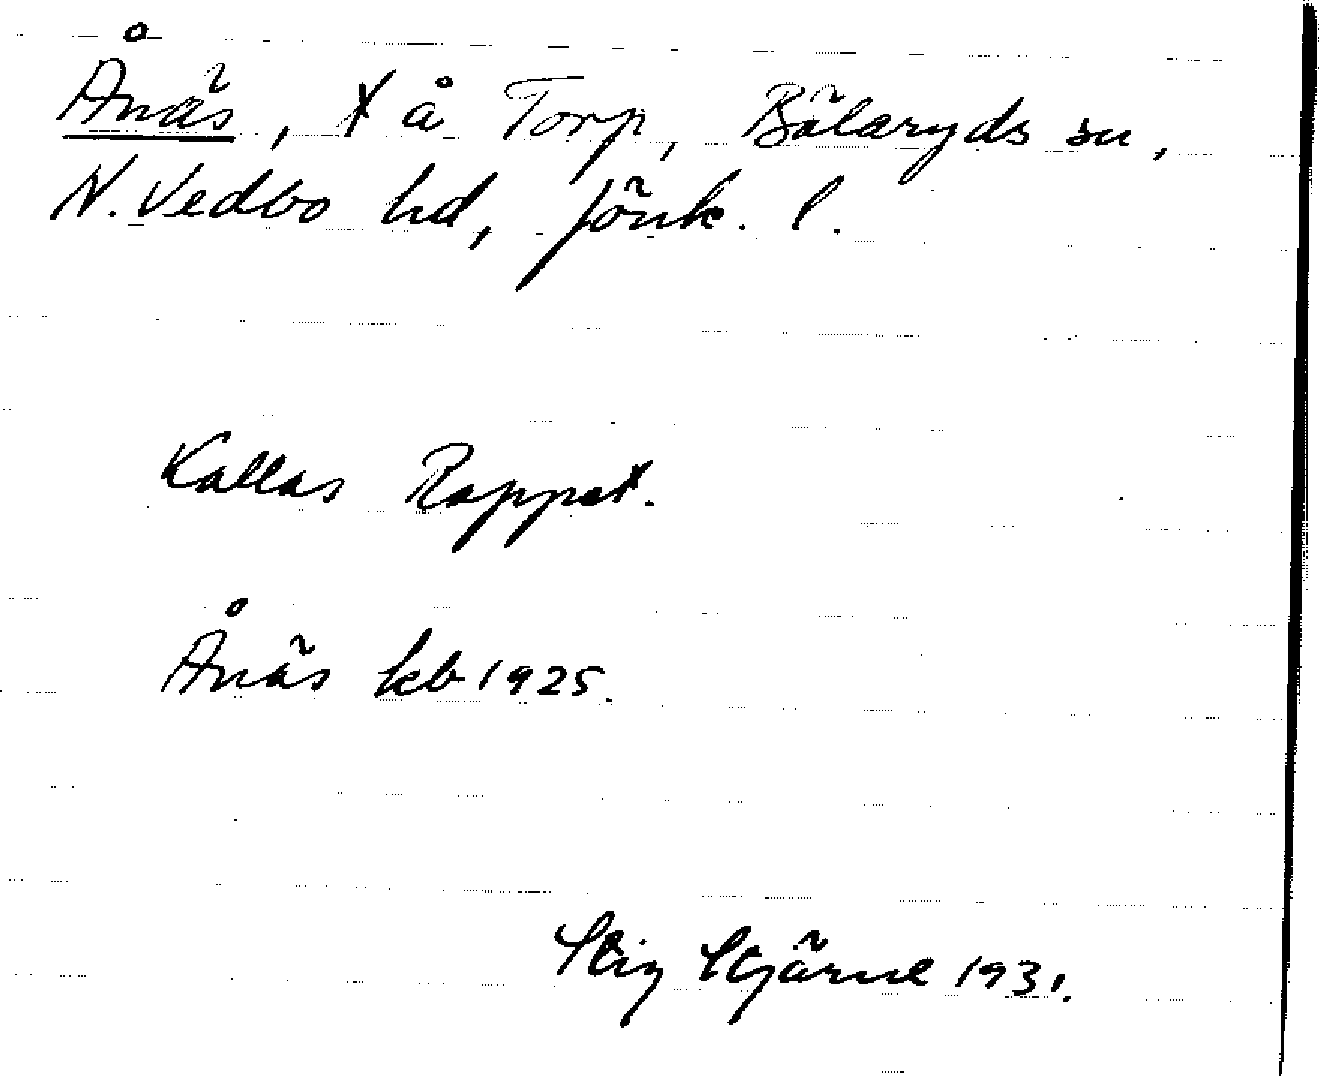 Ånäs, t å Torp, Bälaryds sn,
N. Vedbo hd, Jönk. l.
Kallas Rappet.
Ånäs kb 1925.
Stig Stjärne 1931.